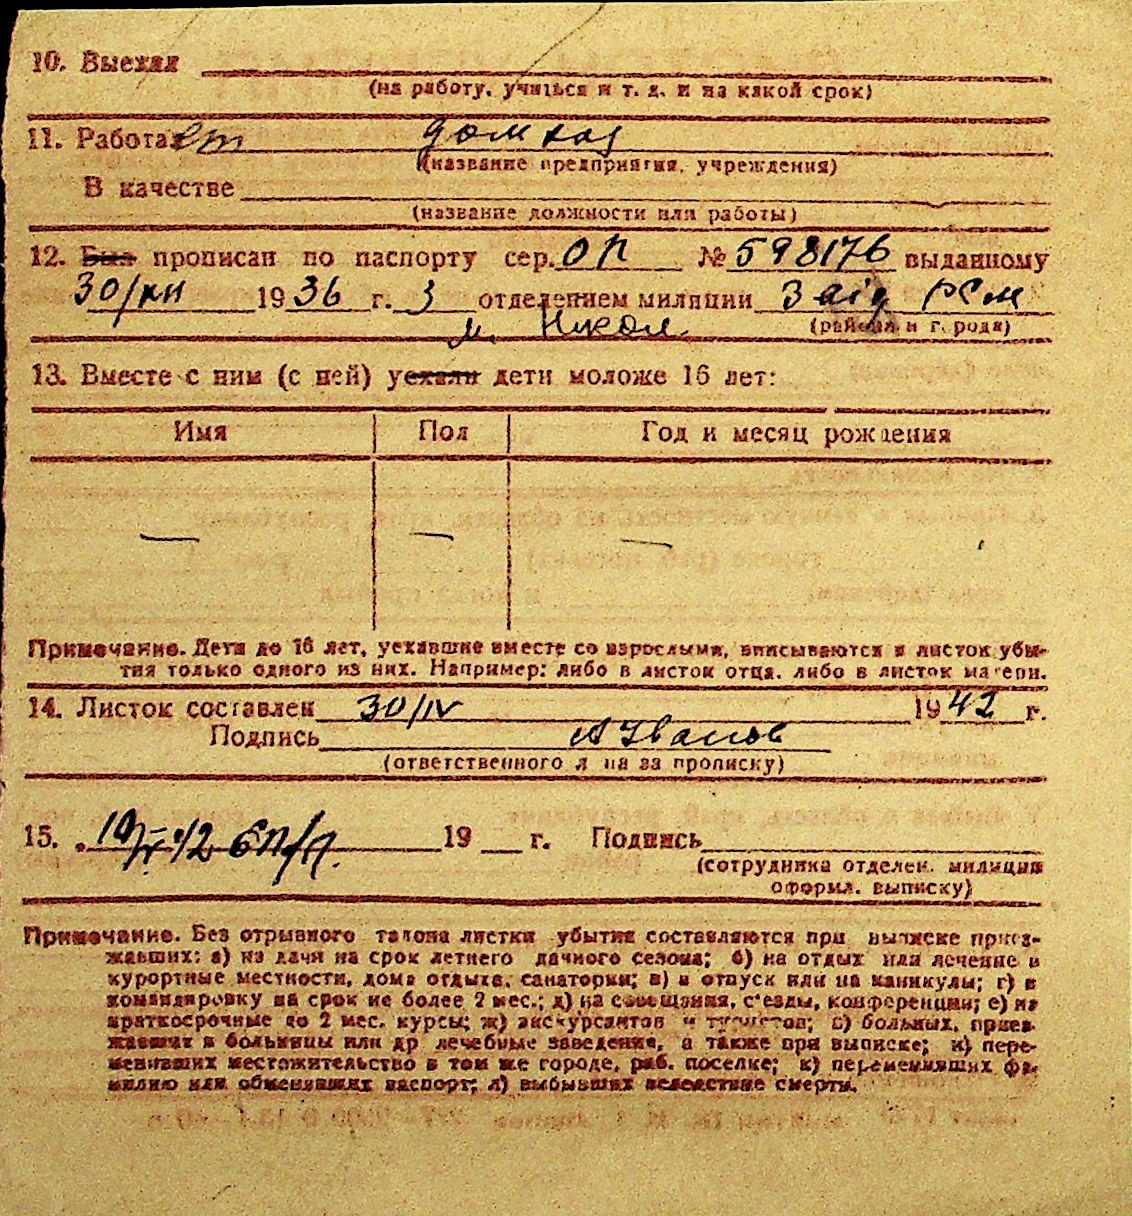 10. Выехал
(на работу, учиться и т. д. и на какой срок)
11. Работает домхоз
(название предприятия, учреждения)
В качестве
(название должности или работы)
12. Был прописан по паспорту сер. ОП № 598176 выданному
30/XII 1936 г. 3 отделением милиции
м. Никол. (района и города)
13. Вместе с ним (с ней) уехали дети моложе 16 лет:
Имя Пол Год и месяц рождения
— — —
Примечание. Дети до 16 лет, уехавшие вместе со взрослыми, вписываются в листок убы-
тия только одного из них. Например: либо в листок отца, либо в листок матери.
14. Листок составлен 30/IV 1942 г.
Подпись АИванов
(ответственного лица за прописку)
15. 19 г. Подпись
(сотрудника отделен. милиции
оформл. выписку)
Примечание. Без отрывного талона листки убытия составляются при выписке приез-
жавших: а) на дачи на срок летнего дачного сезона; б) на отдых или лечение в
курортные местности, дома отдыха, санатории; в) в отпуск или на каникулы; г) в
командировку на срок не более 2 мес.; д) на совещания, с'езды, конференции; е) на
краткосрочные до 2 мес. курсы; ж) экскурсантов и туристов; з) больных, приез-
жавших в больницы или др лечебные заведения, а также при выписке; и) пере-
менивших местожительство в том же городе, раб. поселке; к) переменивших фа-
милию или обменявших паспорт; л) выбывших вследствие смерти.